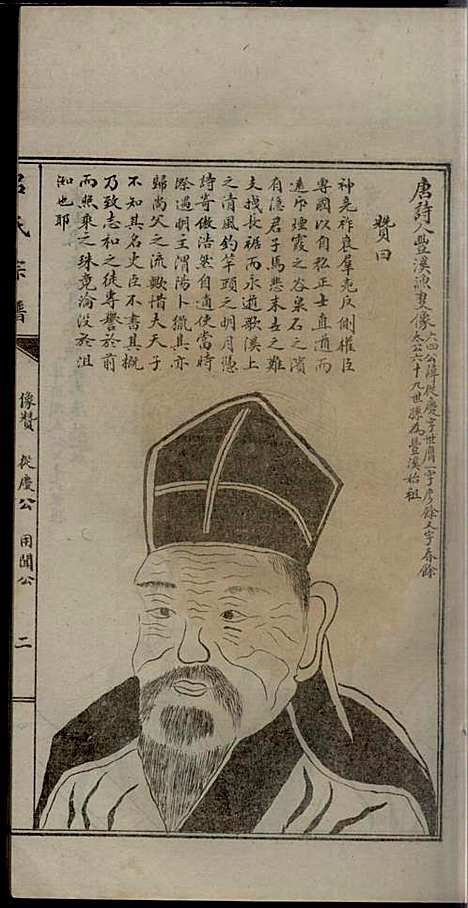 唐詩人豐溪漁叟像
六四公諱從慶字世膺一字彥餘又字春餘
太公六十九世孫為豐溪始祖
贊曰
神堯祚衰羣兇反側權臣
專國以自私正士直道而
遠斥煙霞之谷泉石之濱
有隱君子焉悲末古之難
支拽長裾而永遁歌溪上
之清風釣竿頭之明月憑
詩寄傲浩然自適使當時
際遇明王渭陽卜獵其亦
歸尚父之流歟惜夫天子
不知其名史臣不書其概
乃致志和之徒專譽於前
而照乘之珠竟淪沒於沮
洳也耶
呂氏宗譜
像贊
從慶公
用聞公
二